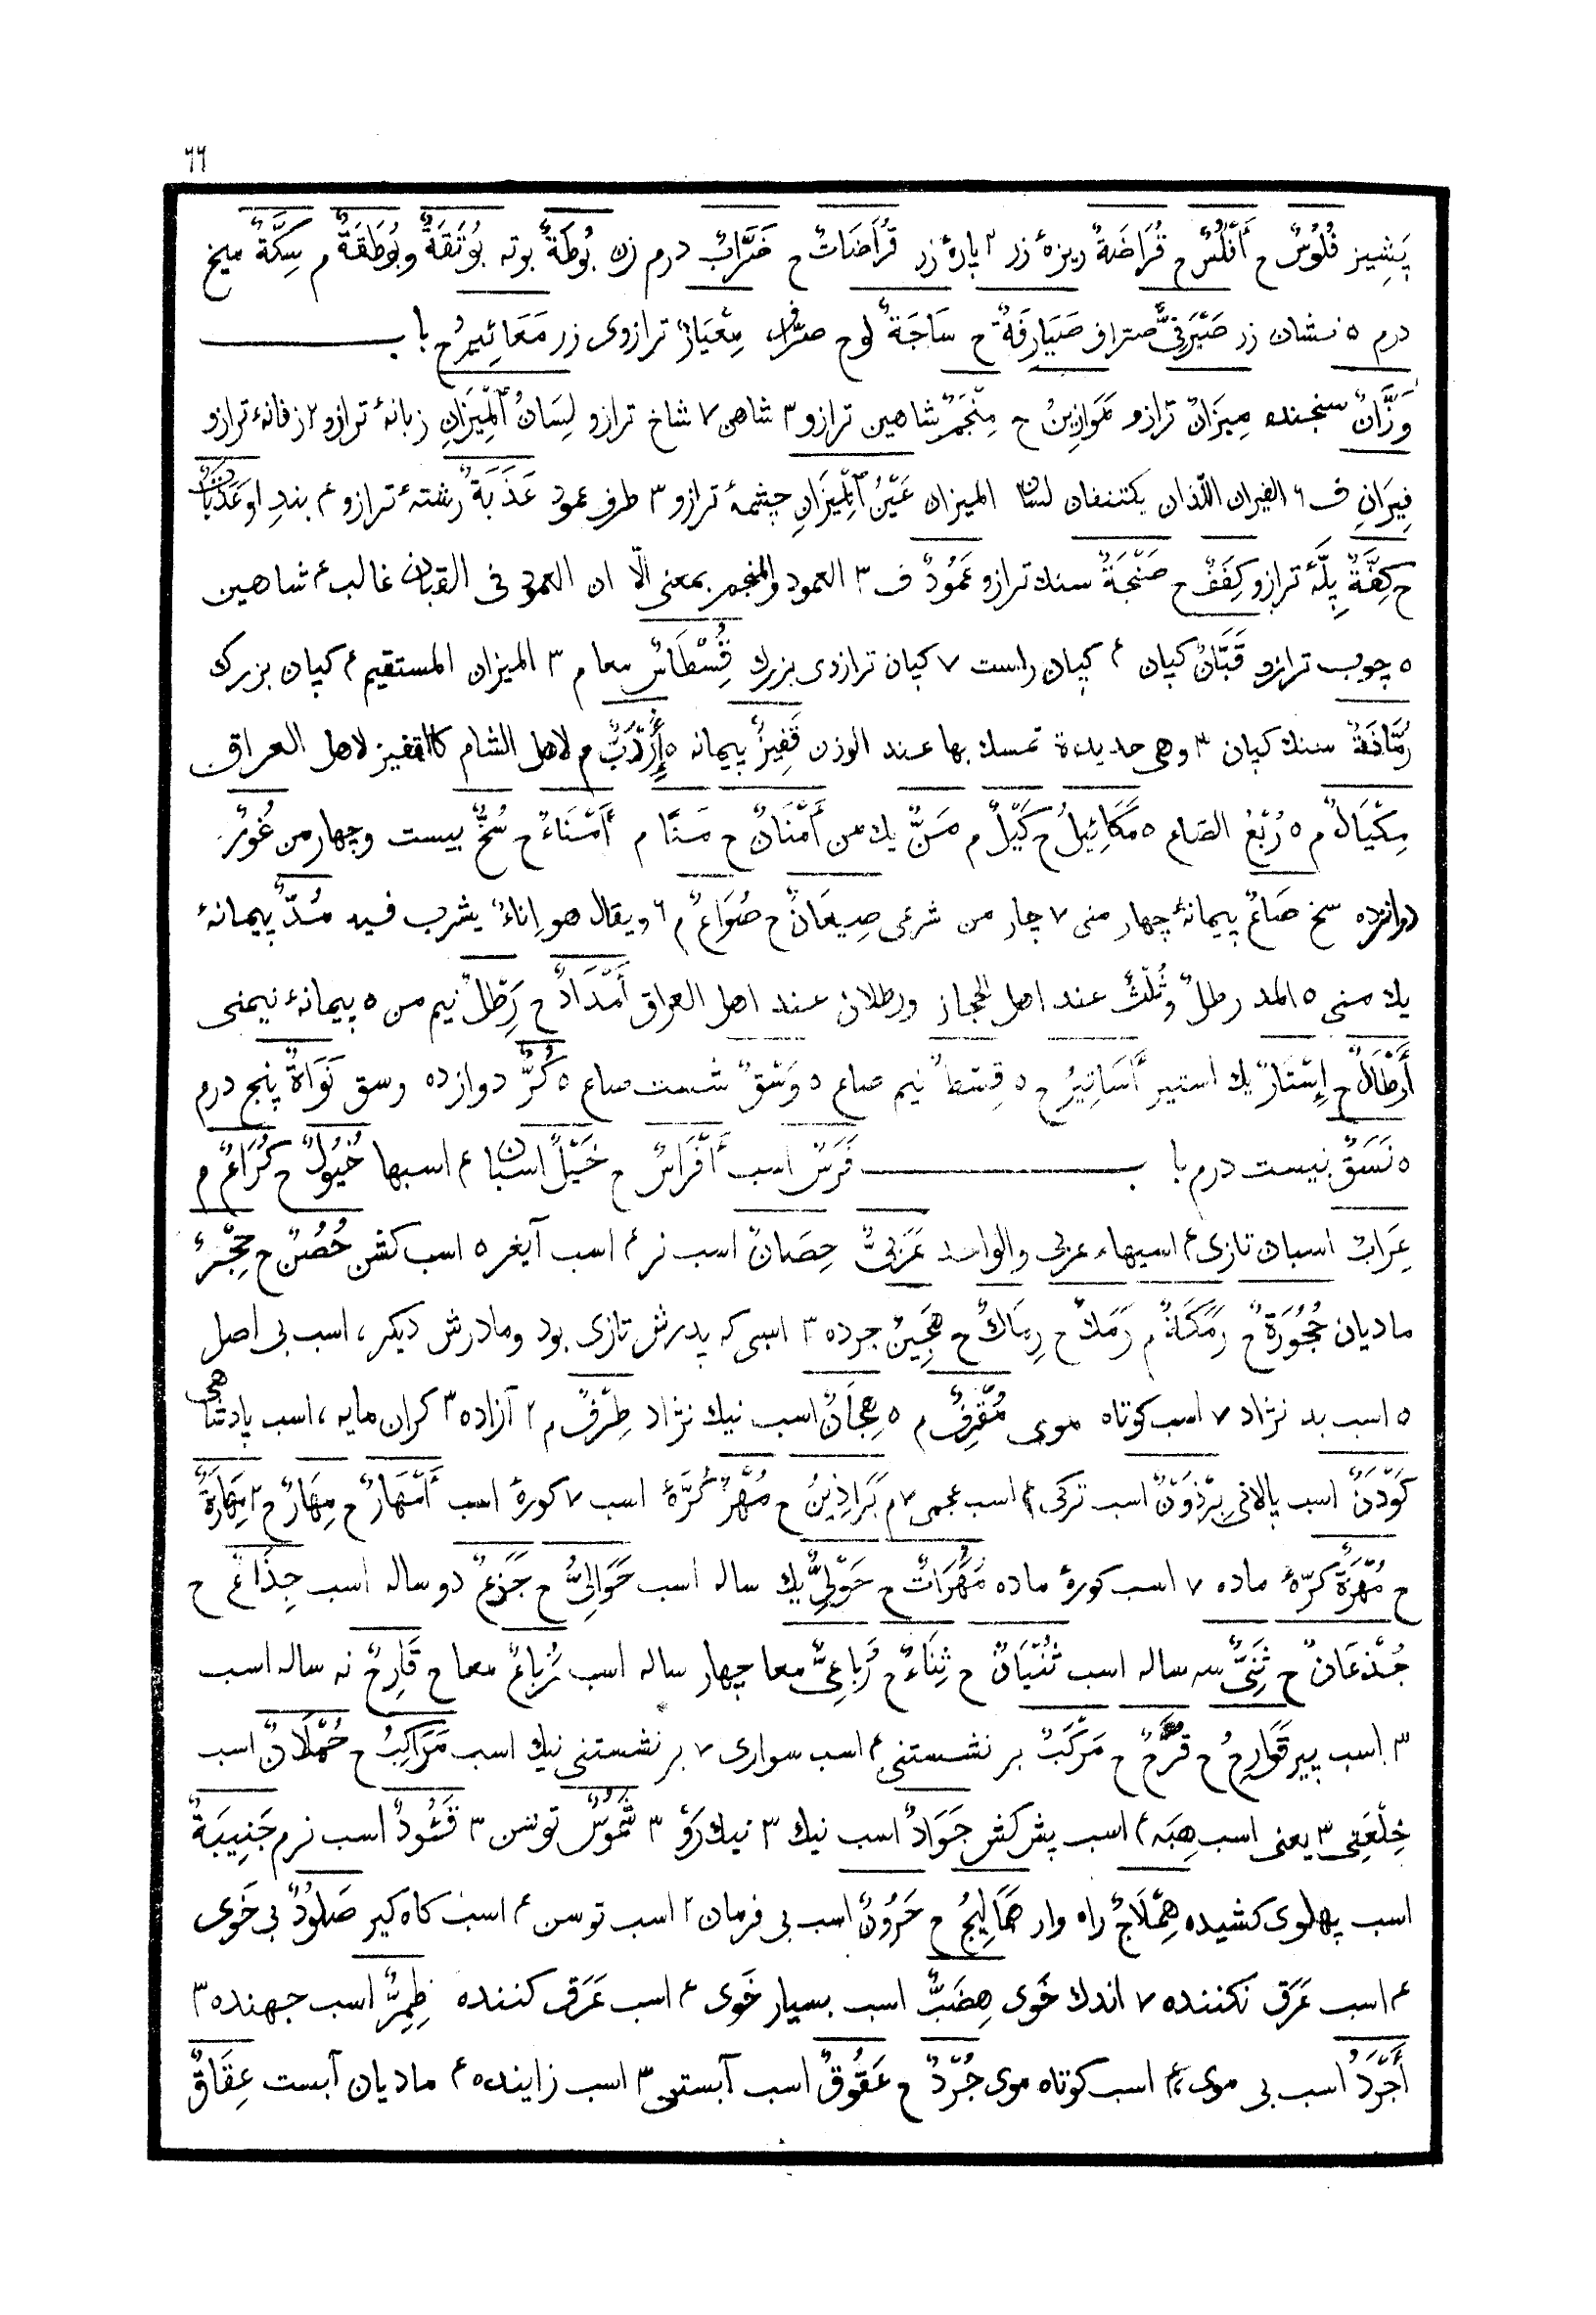 ٦٦
پَشِيز فُلُوسٌ ح أَفْلُسٌ ح قُرَاضَةٌ ريزهٔ زر ٢ پارهٔ زر قُرَاضَاتٌ ح ضَرَّابٌ درم زن بُوطَةٌ بوته بُوتَقَةٌ وبُوطَقَةٌ م سِكَّةٌ ميخ
درم ٥ نشان زر صَيْرَفِيٌّ صراف صَيَارِفَةٌ ح سَاجَةٌ لوح صراف مِعْيَارٌ ترازوى زر مَعَائِيرُ ح باب
وَزَّانٌ سنجنده مِيزَانٌ ترازو مَوَازِينُ ح مِنْجَمٌ شاهين ترازو ٣ شاهى ٧ شاخ ترازو لِسَانُ ٱلْمِيزَانِ زبانهٔ ترازو ٢ زفانهٔ ترازو
فِيرَانِ ف ٦ الفيران اللّذان يكتنفان لسان الميزان عَيْنُ ٱلْمِيزَانِ چشمهٔ ترازو ٣ طرف عمود عَذَبَةٌ رشتهٔ ترازو ٤ بندِ او عَذَبَاتٌ
ح كِفَّةٌ پِلّهٔ ترازو كِفَفٌ ح صَنْجَةٌ سنك ترازو عَمُودٌ ف ٣ العمود والمنجم بمعنى الّا ان العمود فى القبان غالب ٤ شاهين
٥ چوب ترازو قَبَّانٌ كپان ٤ كپان راست ٧ كپان ترازوى بزرك قُِسْطَاسٌ معا م ٣ الميزان المستقيم ٤ كپان بزرك
رُمَّانَةٌ سنك كپان ٣ وهى حديدة تمسك بها عند الوزن قَفِيزٌ پيمانه ٥ إِرْدَبٌّ م لاهل الشام كالقفيز لاهل العراق
مِكْيَالٌ م ٥ رُبْعُ الصاع ٥ مَكَائِيلُ ح كَيْلٌ م مَنٌّ يك من أَمْنَانٌ ح مَنًا م أَمْنَاءٌ ح سُخٌّ بيست وچهار من غُورٌ
دوازده سخ صَاعٌ پيمانهٔ چهار منى ٧ چار من شرعى صِيعَانٌ ح صُوَاعٌ م ٦ ويقال هو اِناءٌ يشرب فيه مُدٌّ پيمانهٔ
يك منى ٥ المد رطلٌ وثُلْثٌ عند اهل الحجاز ورطلان عند اهل العراق أَمْدَادٌ ح رِطْلٌ نيم من ٥ پيمانهٔ نيمنى
أَرْطَالٌ ح إِسْتَارٌ يك استير أَسَاتِيرُ ح ٥ قِسْطٌ نيم صاع ٥ وَسْقٌ شست صاع ٥ كُرٌّ دوازده وسق نَوَاةٌ پنج درم
٥ نَسَقٌ بيست درم باب فَرَسٌ اسب أَفْرَاسٌ ح خَيْلٌ اسبان ٤ اسبها خُيُولٌ ح كُرَاعٌ م
عِرَابٌ اسبان تازى ٤ اسبهاء عربى والواحد عَرَبِىٌّ حِصَانٌ اسب نر ٤ اسب آيغر ٥ اسب كشن حُصُنٌ ح حِجْرٌ
ماديان حُجُورَةٌ ح رَمَكَةٌ م رَمَكٌ ح رِمَاكٌ ح هَجِينٌ جرده ٣ اسبى كه پدرش تازى بود ومادرش ديكر ، اسب بى اصل
٥ اسب بد نژاد ٧ اسب كوتاه موى مُقْرِفٌ م ٥ هِجَانٌ اسب نيك نژاد طِرْفٌ م ٢ آزاده ٣ كران مايه ، اسب پادشاهى
كَوْدَنٌ اسب پالانى بِرْذَوْنٌ اسب تركى ٤ اسب عجمى ٧ م بَرَاذِينُ ح مُهْرٌ كُرَّهٔ اسب ٧ كورهٔ اسب أَمْهَارٌ ح مِهَارٌ ح ٢ مِهَارَةٌ
ح مُهْرَةٌ كرّهٔ ماده ٧ اسب كورهٔ ماده مُهْرَاتٌ ح حَوْلِىٌّ يك ساله اسب حَوَالِىُّ ح جَذَعٌ دو ساله اسب جِذَاعٌ ح
جُذْعَانٌ ح ثَنِىٌّ سه ساله اسب ثُنْيَانٌ ح ثِنَاءٌ ح رَُبَاعِىٌّ معا چهار ساله اسب رَُبَاعٌ معا ح قَارِحٌ نه ساله اسب
٣ اسب پير قَوَارِحُ ح قُرَّحٌ ح مَرْكَبٌ بر نشستنى ٤ اسب سوارى ٧ بر نشستنى نيك اسب مَرَاكِبُ ح حُمْلَانٌ اسب
خِلْعَتِى ٣ يعنى اسب هِبَه ٤ اسب پش كش جَوَادٌ اسب نيك ٣ نيك رَوْ ٣ شَمُوسٌ توسن ٣ قَئُودٌ اسب نرم جَنِيبَةٌ
اسب پهلوى كشيده هِمْلَاجٌ راه وار هَمَالِيجُ ح حَرُونٌ اسب بى فرمان ٢ اسب توسن ٤ اسب كاه كير صَلُودٌ بى خَوى
٤ اسب عَرَق نكننده ٧ اندك خَوى هِضَبٌّ اسب بسيار خَوى ٤ اسب عَرَق كننده طِمِرٌّ اسب جهنده ٣
أَجْرَدُ اسب بى موى ٤ اسب كوتاه موى جُرْدٌ ح عَقُوقٌ اسب آبستن ٣ اسب زاينده ٤ ماديان آبست عِقَاقٌ